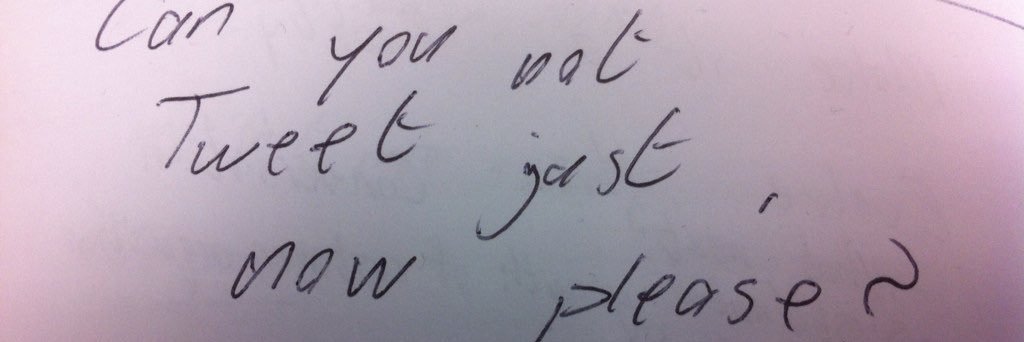 Can you not
Tweet just
now please?